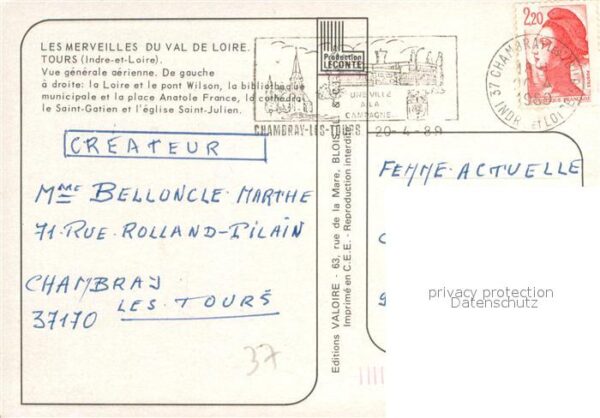 LES MERVEILLES DU VAL DE LOIRE.
TOURS (Indre-et-Loire).
Vue générale aérienne. De gauche
à droite: la Loire et le pont Wilson, la bibliothèque
municipale et la place Anatole France, la cathédrale
le Saint-Gatien et l'église Saint-Julien.
CRÉATEUR
Mme BELLONCLE MARTHE
71 RUE ROLLAND-PILAIN
CHAMBRAY
LES TOURS
37170
37
Production
LECONTE
Editions VALOIRE - 63, rue de la Mare, BLOIS
Imprimé en C.E.E. - Reproduction interdite
UNE VILLE
A LA
CAMPAGNE
CHAMBRAY-LES-TOURS 20-4-89
2,20
37 CHAMBRAY
INDRE ET LOIRE
FEMME ACTUELLE
privacy protection
Datenschutz